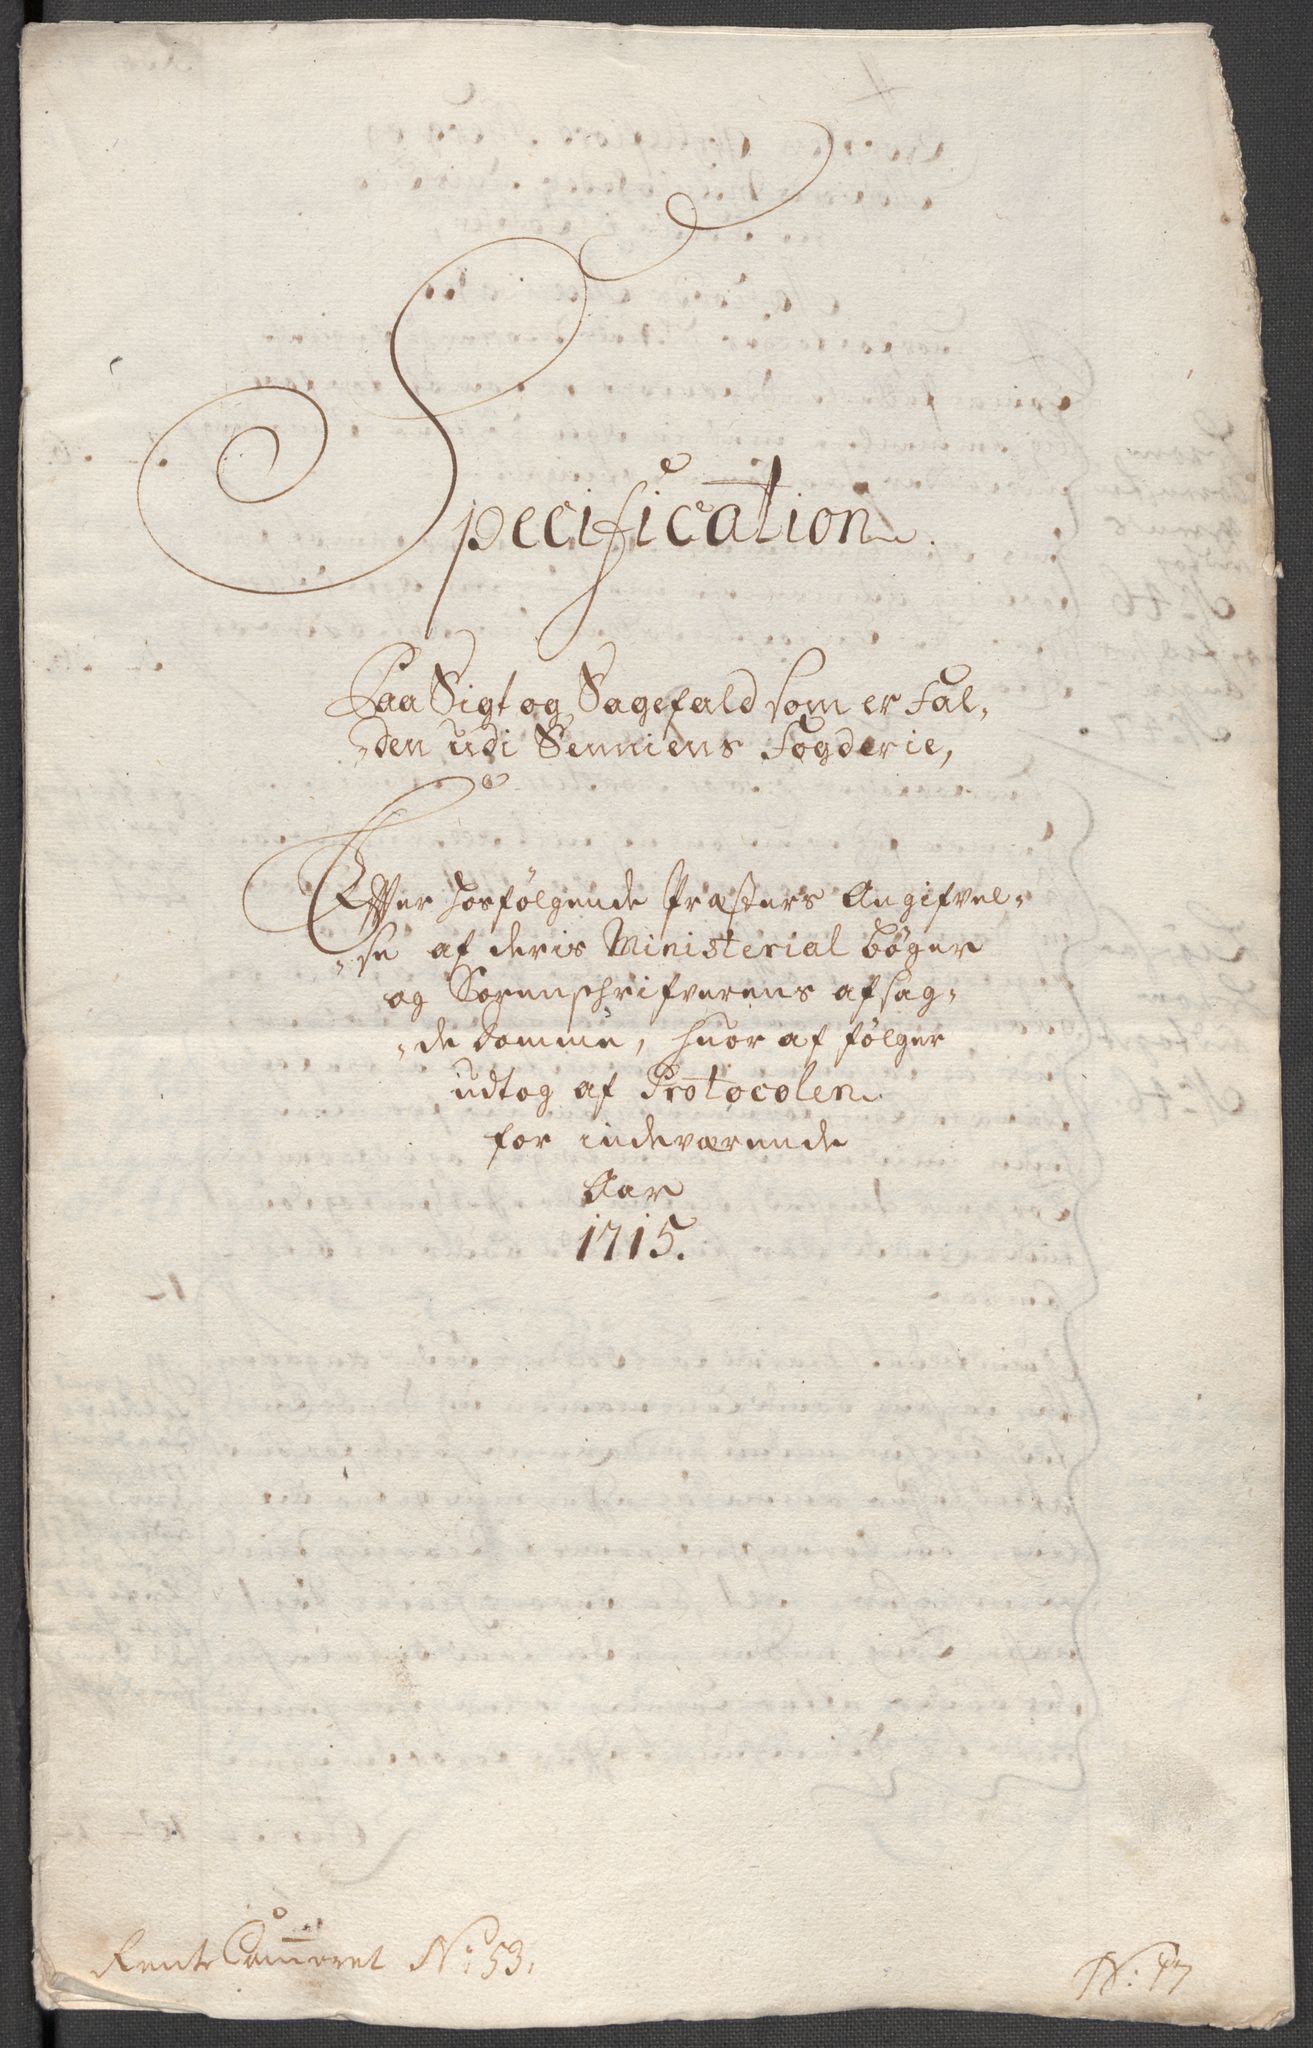 Specification
Paa Sigt og Sagefald som er fal-
-den udi Senniens Fogderie,
Efter hosfølgende Præsters Angifvel-
-se af deris Ministerial bøger
og Sorenschrifverens afsag-
-de domme, huor af følger
udtog af Protocolen
for indeværende
Aar
1715.
Rente Cammeret No: 53.
N: 47